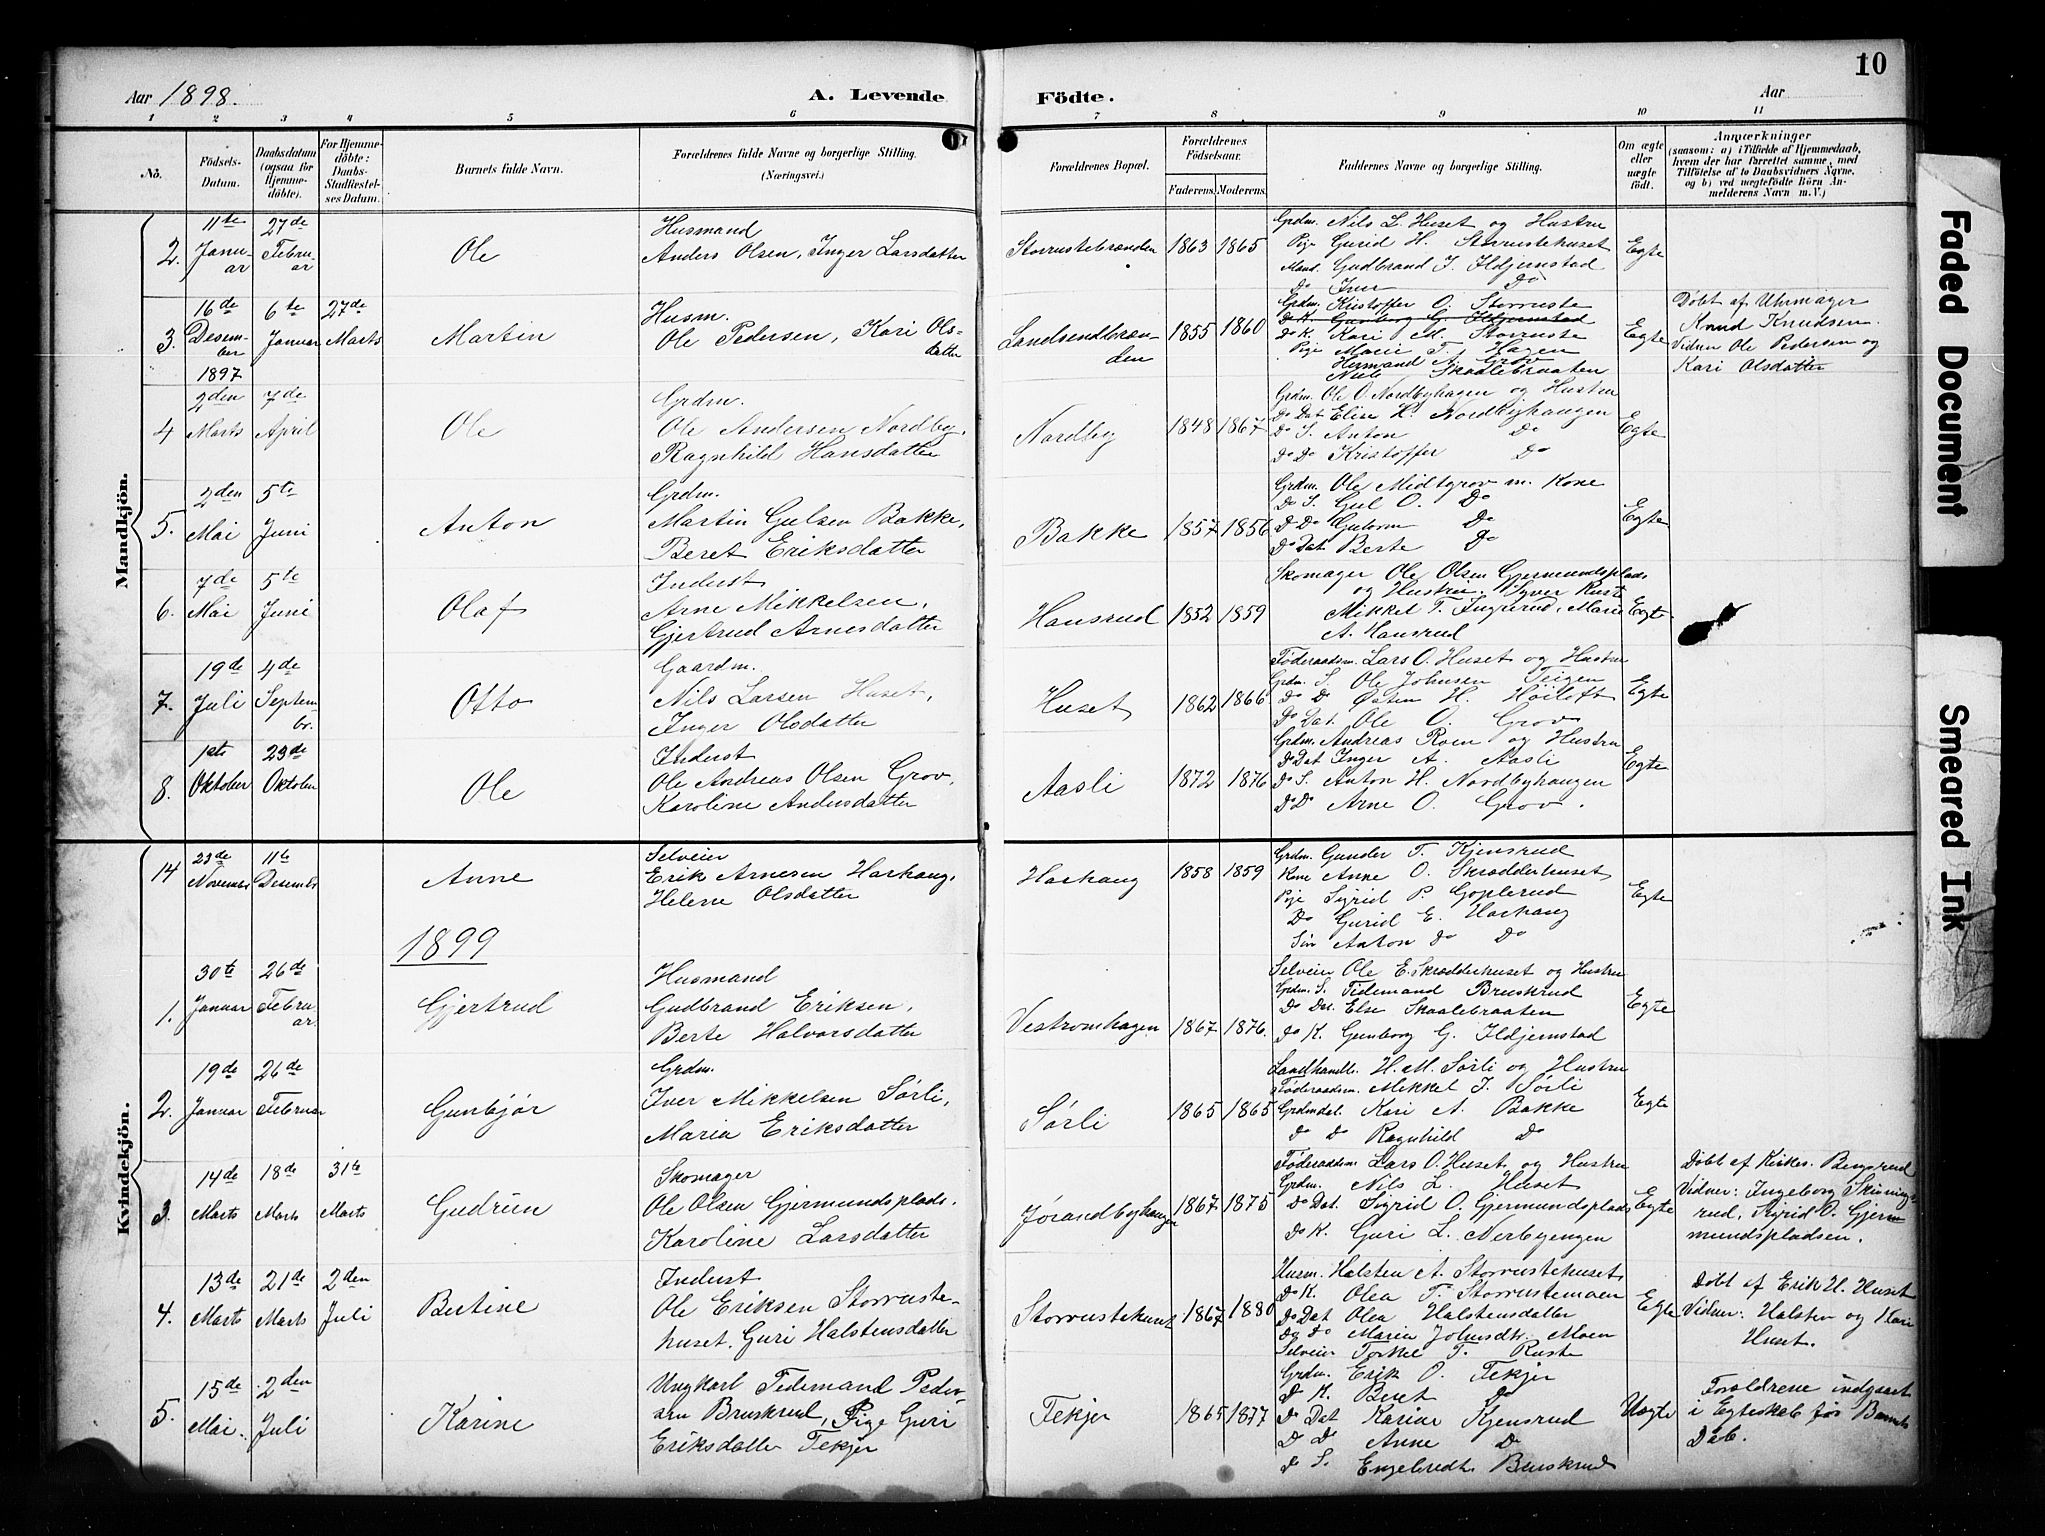 10
Aar 1898.
A. Levende Födte.
Aar
1 2 3 4 5 6 7 8 9 10 11
No.
Födsels-Datum.
Daabsdatum (ogsaa for Hjemmedöbte).
For Hjemmedöbte: Daabs-Stadfæstelses Datum.
Barnets fulde Navn.
Forældrenes fulde Navne og borgerlige Stilling. (Næringsvei.)
Forældrenes Bopæl.
Forældrenes Födselsaar.
Faderens. Moderens.
Faddernes Navne og borgerlige Stilling.
Om ægte eller uægte födt.
Anmærkninger
(saasom: a) i Tilfælde af Hjemmedaab, hvem der har forrettet samme, med Tilföielse af to Daabsvidners Navne, og b) ved uægtefödte Börn Anmelderens Navn m. V.)
Mandkjön.
2. 11te Januar 27de Februar
Ole
Husmand
Anders Olsen, Inger Larsdatter
Storrustebrænden 1863 1865
Grdm. Nils L. Huset og Hustru
Pige Gurid H. Storrustehuset
Mand. Gudbrand I. Ildjernstad
Do Iver Do
Egte
3. 16de Desember 1897 6te Januar 27de Marts
Martin
Husm.
Ole Pedersen, Kari Olsdatter
Landsendbrænden 1855 1860
Grdm. Kristoffer O. Storruste
Do K. Gunborg G. Ildjernstad
Do K. Kari M. Storruste
Pige Marie T. Hagen
Husmand A. Grov
Nils Skaalebraaten
Egte
Døbt af Uhrmager
Knud Knudsen.
Vidner Ole Pedersen og
Kari Olsdatter
4 2den Marts 7de April
Ole
Grdm.
Ole Andersen Nordby,
Ragnhild Hansdatter
Nordby 1848 1867
Grdm. Ole O. Nordbyhagen og Hustru
Do Dat Elise H. Nordbyhaugen
Do S. Anton Do
Do Do Kristoffer Do
Egte
5. 2den Mai 5te Juni
Anton
Grdm.
Martin Gulsen Bakke,
Beret Eriksdatter
Bakke 1857 1856
Grdm. Ole Midtgrov m. Kone
Do S. Gul O. Do
Do Do Guttorm Do
Do Dat Berte Do
Egte
6. 7de Mai 5te Juni
Olaf
Inderst
Arne Mikkelsen,
Gjertrud Arnesdatter
Hansrud 1852 1859
Skomager Ole Olsen Gjermundsplads
og Hustru. Syver Ruste
Mikkel T. Ingrerud, Marie
A. Hansrud
Egte
7. 19de Juli 4de Septembr.
Otto
Gaardm.
Nils Larsen Huset,
Inger Olsdatter
Huset 1862 1866
Føderaadsm. Lars O. Huset og Hustru
Grdm. S. Ole Johnsen Teigen
Do Do Østen H. Høiloft
Do Dat. Ole O. Grov
Egte
8. 1ste Oktober 23de Oktober
Ole
Inderst
Ole Andreas Olsen Grov,
Karoline Andersdatter
Aasli 1872 1876
Grdm. Andreas Roen og Hustru
Do Dat Inger A. Aasli
Do S. Anton H. Nordbyhaugen
Do Do Arne O. Grov.
Egte
Kvindekjön.
14 23de Novembr 11te Desembr
Anne
Selveier
Erik Arnesen Haskaug,
Helene Olsdatter
Haskaug 1858 1859
Grdm. Gunder T. Kjensrud
Kone Anne O. Skrædderhuset
Pige Sigrid P. Goplerud
Do Gurid E. Haskaug
Søn Anton Do Do
Egte
1899
1. 30te Januar 26de Februar
Gjertrud
Husmand
Gudbrand Eriksen,
Berte Halvorsdatter
Vestromhagen 1867 1876.
Selveier Ole E. Skrædderhuset og Hustru
Grdm. S. Tidemand Bruskrud
Do Dat. Else Skaalebraaten
Do K. Gunborg G. Ildjernstad
Egte
2. 19de Januar 26de Februar
Gunbjør
Grdm.
Iver Mikkelsen Sørli,
Maria Eriksdatter
Sørli 1865 1865
Landhandl. H. M. Sørli og Hustru
Føderaadsm. Mikkel I. Sørli
Grdmdat. Kari A. Bakke
Do Do Ragnhild Do
Egte
3. 14de Marts 18de Marts 31te Marts
Gudrun
Skomager
Ole Olsen Gjermundsplads.
Karoline Larsdatter
Jørandbyhaugen 1867 1875
Føderaadsm Lars O. Huset og Hustru
Grdm. Nils L. Huset
Do Dat. Sigrid O. Gjermundsplads
Do K. Guri L. Nerbyengen
Egte
Døbt af Kirkes. Bergsrud
Vidner: Ingeborg Skinningsrud, Sigrid O. Gjermundspladsen.
4. 13de Marts 21de Marts 2den Juli
Bertine
Inderst
Ole Eriksen Storrustehuset. Guri Halstensdatter
1867 1880
Husm. Halsten A. Storrustehuset
Do K. Olea T. Storrustemoen
Do Dat Olea Halstensdatter
Do Do Maria Johnsdtr. Moen
Selveier Torkel T. Ruste
Egte
Døbt af Erik H. Huset
Vidner: Halsten og Kari
Huset.
5. 15de Mai. 2den Juli
Karine
Ungkarl Tidemand Pedersen Bruskrud, Pige Guri
Eriksdatter Tekjer
Tekjer 1865 1877
Grdm. Erik O. Tekjer
Do K. Beret Do
Do Dat Karine Kjensrud
Do Do Anne Do
Do S. Engebredt Bruskrud
Uægte
Forældrene indgaaet
i Egteskab før Barnets
Daab.
Faded Document
Smeared Ink